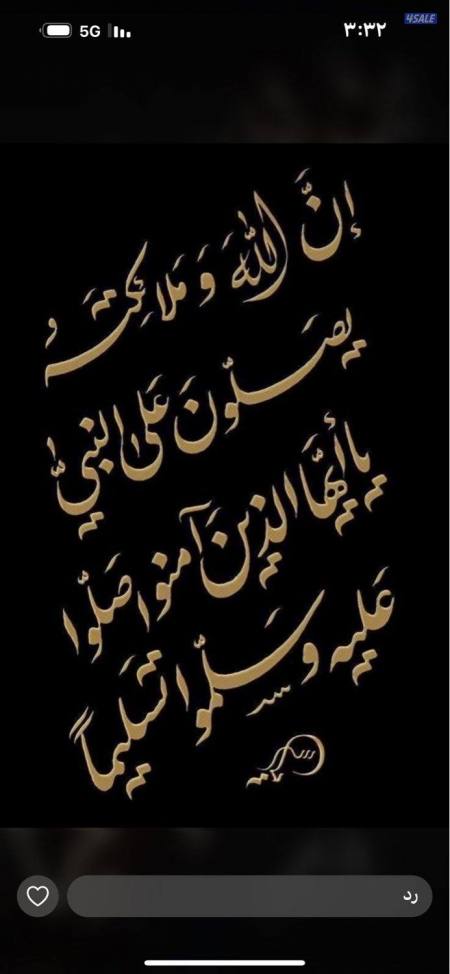 5G
٣:٣٢
4SALE
إنَّ اللّهَ وَ مَلائِكتَهُ
يصَلّونَ عَلى النبيِّ
يا أيّها الذينَ آمنوا صَلّوا
عَليهِ وَ سَلّموا تسَليماً
رد